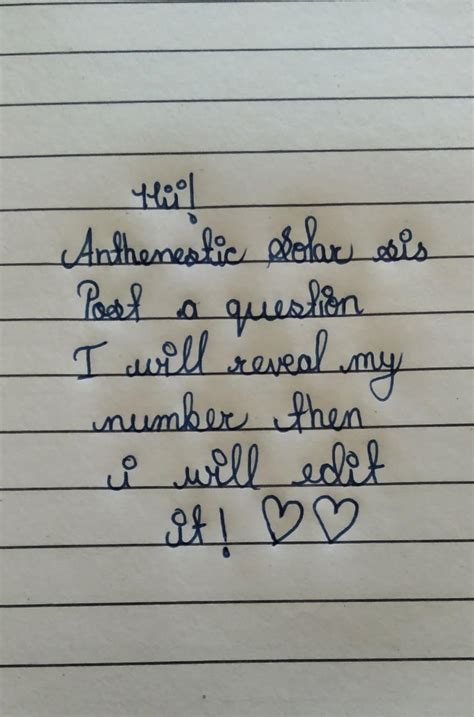 Hii!
Anthenestic Solar sis
Post a question
I will reveal my
number then
i will edit
it! ♡♡